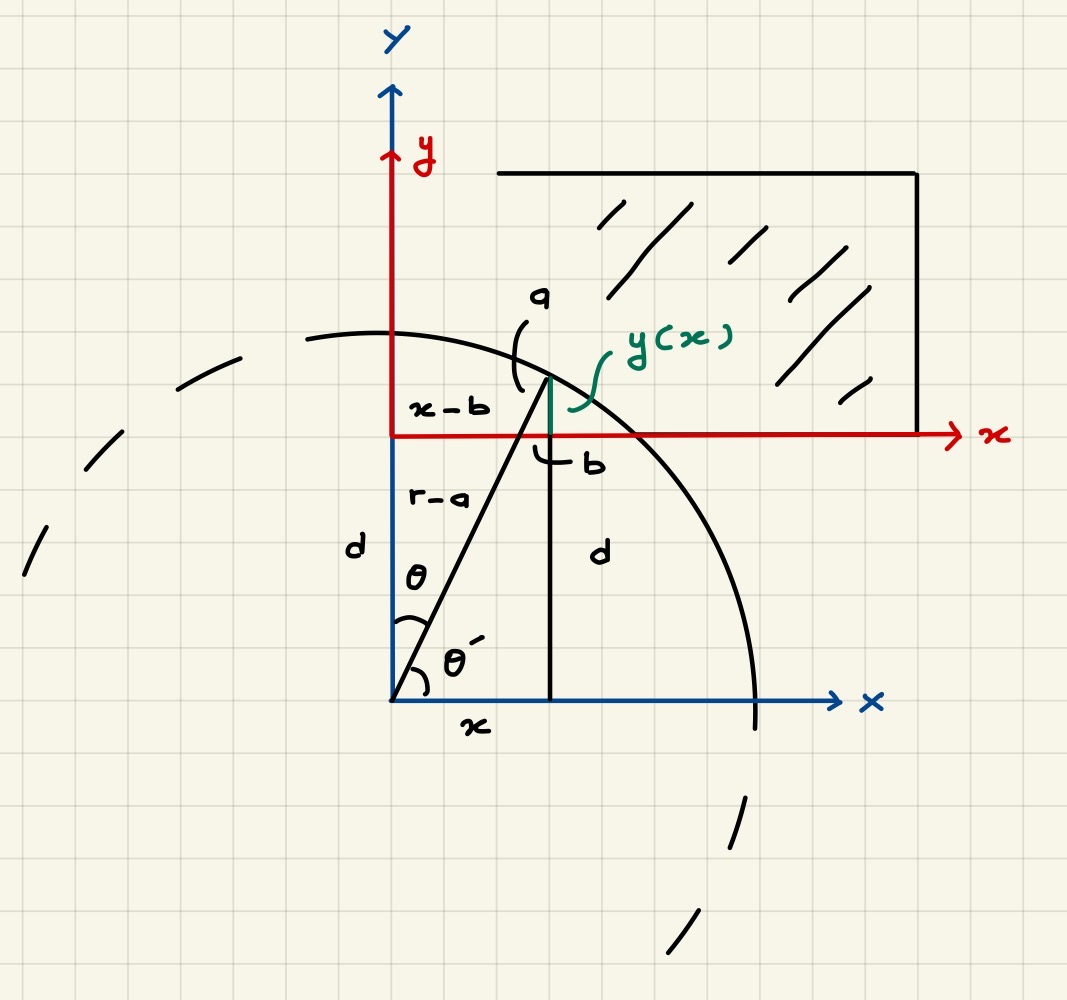 Y
y
a
y(x)
x-b
x
b
r-a
d
d
θ
θ´
x
x